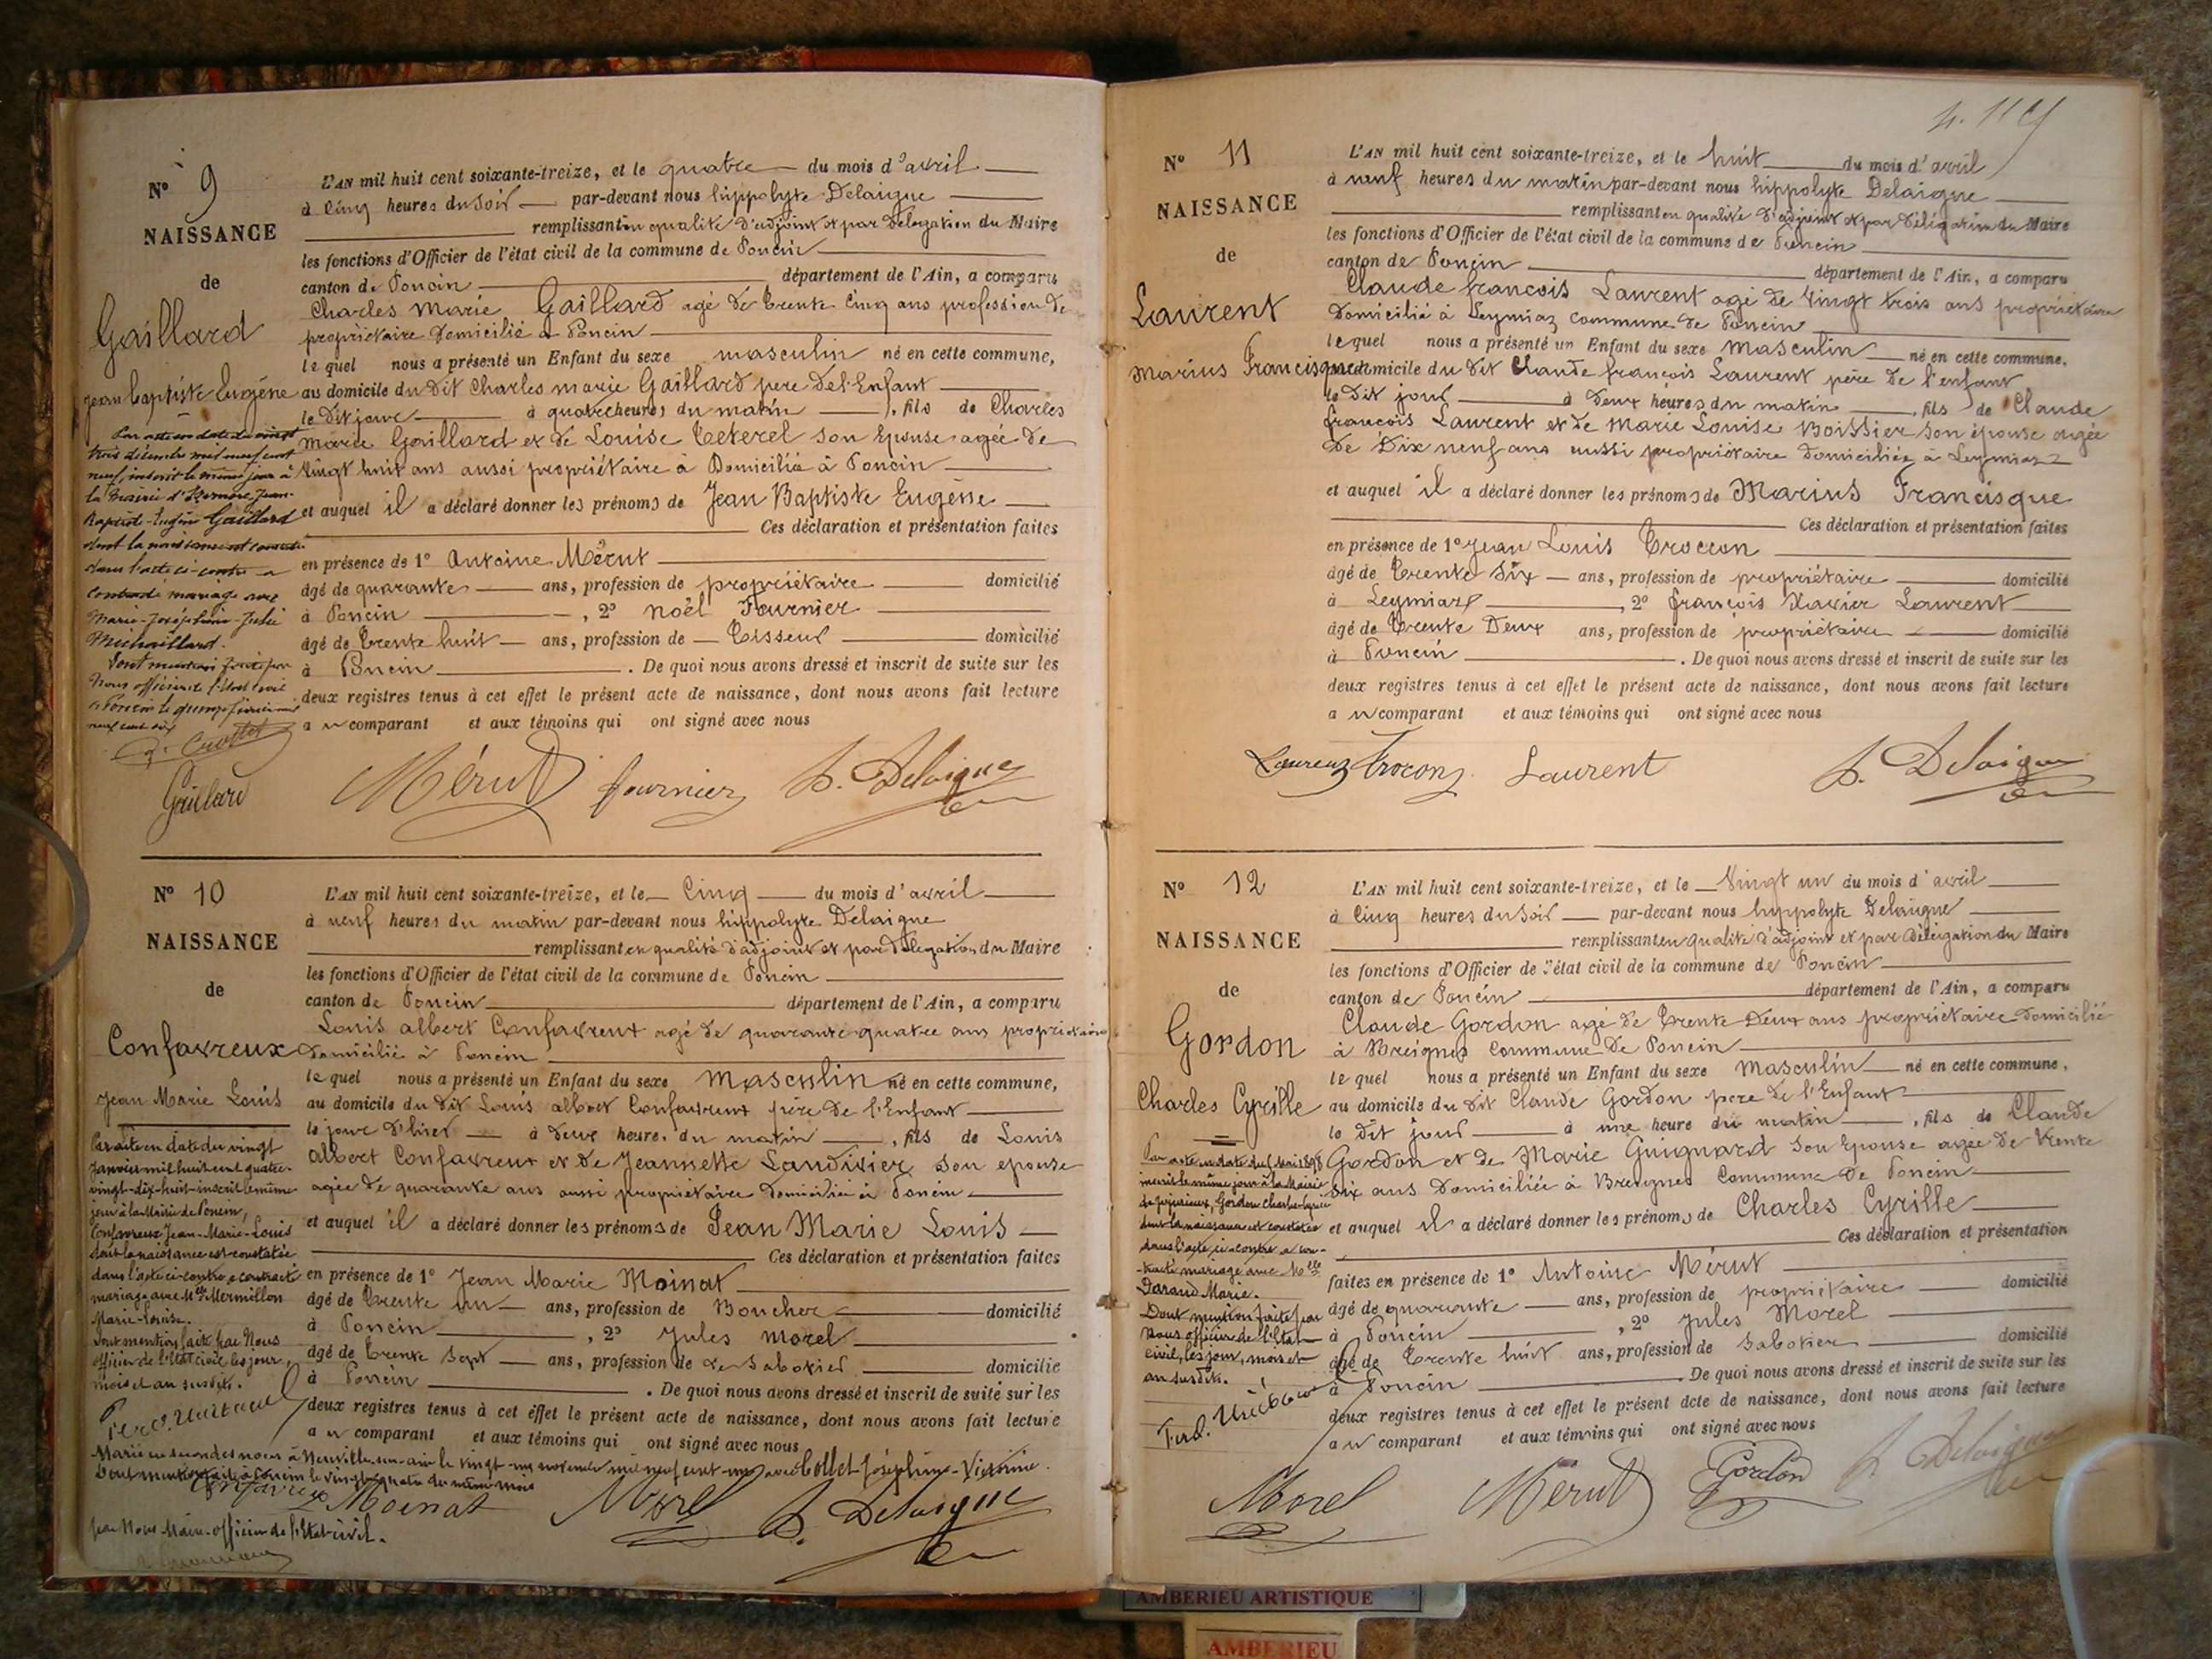 N° 9
NAISSANCE
de
Gaillard
Jean Baptiste Eugène
Par acte en date du vingt
trois décembre mil neuf cent
neuf, inscrit le même jour à
la Mairie d'Izernore, Jean-
Baptiste-Eugène Gaillard
dont la naissance est constatée
dans l'acte ci-contre a
contracté mariage avec
Marie-Joséphine-Julie
Michaillard.
Dont mention faite par
Nous officier de l'Etat civil
à Poncin le quinze
neuf cent dix
L'AN mil huit cent soixante-treize, et le quatre du mois d'avril
à Cinq heures du Soir par-devant nous hippolyte Delaigue
remplissant en qualité d'adjoint et par délégation du Maire
les fonctions d'Officier de l'état civil de la commune de Poncin
canton de Poncin département de l'Ain, a comparu
Charles Marie Gaillard agé de trente Cinq ans profession de
propriétaire domicilié à Poncin
lequel nous a présenté un Enfant du sexe masculin né en cette commune,
au domicile du dit Charles marie Gaillard père de l'Enfant
le dit jour à quatre heures du matin, fils de Charles
Marie Gaillard et de Louise Teterel son Epouse agée de
Vingt huit ans aussi propriétaire à Domicilié à Poncin
et auquel il a déclaré donner les prénoms de Jean Baptiste Eugène
Ces déclaration et présentation faites
en présence de 1° Antoine Mérut
âgé de quarante ans, profession de propriétaire domicilié
à Poncin, 2° noël Fournier
âgé de trente huit ans, profession de Tisseur domicilié
à Poncin. De quoi nous avons dressé et inscrit de suite sur les
deux registres tenus à cet effet le présent acte de naissance, dont nous avons fait lecture
au comparant et aux témoins qui ont signé avec nous
Gaillard Mérut fournier h. Delaigue
N° 10
NAISSANCE
de
Confavreux
Jean Marie Louis
Par acte en date du vingt
Janvier mil huit cent quatre-
vingt-dix-huit inscrit le même
jour à la Mairie de Poncin,
Confavreux Jean-Marie-Louis
dont la naissance est constatée
dans l'acte ci-contre a contracté
mariage avec Melle Mermillon
Marie-Louise.
Dont mention faite par Nous
officier de l'Etat civil les jour,
mois et an susdits.
L'AN mil huit cent soixante-treize, et le Cinq du mois d'avril
à neuf heures du matin par-devant nous hippolyte Delaigue
remplissant en qualité d'adjoint et par délégation du Maire
les fonctions d'Officier de l'état civil de la commune de Poncin
canton de Poncin département de l'Ain, a comparu
Louis albert Confavreux agé de quarante quatre ans propriétaire
domicilié à Poncin
lequel nous a présenté un Enfant du sexe Masculin né en cette commune,
au domicile du dit Louis albert Confavreux père de l'Enfant
le jour d'hier à deux heures du matin, fils de Louis
albert Confavreux et de Jeannette Landivier son epouse
agée de quarante ans aussi propriétaire domiciliée à Poncin
et auquel il a déclaré donner les prénoms de Jean Marie Louis
Ces déclaration et présentation faites
en présence de 1° Jean Marie Moinat
âgé de trente un ans, profession de Boucher domicilié
à Poncin, 2° Jules Morel
âgé de trente sept ans, profession de de Sabotier domicilié
à Poncin. De quoi nous avons dressé et inscrit de suite sur les
deux registres tenus à cet effet le présent acte de naissance, dont nous avons fait lecture
au comparant et aux témoins qui ont signé avec nous
Marié en secondes noces à Neuville-sur-Ain le vingt-un novembre mil neuf cent-un avec Collet Joséphine-Victorine.
Dont mention faite à Poncin le vingt-quatre du même mois
par Nous Maire-officier de l'Etat-civil.
Confavreux Moinat Morel h. Delaigue
N° 11
NAISSANCE
de
Laurent
Marius Francisque
L'AN mil huit cent soixante-treize, et le huit du mois d'avril
à neuf heures du matin par-devant nous hippolyte Delaigue
remplissant en qualité d'adjoint et par délégation du Maire
les fonctions d'Officier de l'état civil de la commune de Poncin
canton de Poncin département de l'Ain, a comparu
Claude francois Laurent agé de Vingt trois ans propriétaire
domicilié à Leymiaz commune de Poncin
lequel nous a présenté un Enfant du sexe Masculin né en cette commune,
domicile du dit Claude françois Laurent père de l'enfant
le dit jour à deux heures du matin, fils de Claude
françois Laurent et de Marie Louise Boissier son épouse agée
de Dix neuf ans aussi propriétaire domiciliée à Leymiaz
et auquel il a déclaré donner les prénoms de Marius Francisque
Ces déclaration et présentation faites
en présence de 1° Jean Louis Troccon
âgé de trente Six ans, profession de propriétaire domicilié
à Leymiaz, 2° françois Xavier Laurent
âgé de trente Deux ans, profession de propriétaire domicilié
à Poncin. De quoi nous avons dressé et inscrit de suite sur les
deux registres tenus à cet effet le présent acte de naissance, dont nous avons fait lecture
au comparant et aux témoins qui ont signé avec nous
Laurent Trocon Laurent h. Delaigue
N° 12
NAISSANCE
de
Gordon
Charles Cyrille
inscrit le même jour à la Mairie
de Jujurieux, Gordon Charles Cyrille
dont la naissance est constatée
dans l'acte ci-contre a con-
-tracté mariage avec Melle
Darand Marie.
Dont mention faite par
Nous officier de l'Etat
civil, les jour, mois et
an susdits.
L'AN mil huit cent soixante-treize, et le Vingt un du mois d'avril
à Cinq heures du Soir par-devant nous hyppolyte Delaigue
remplissant en qualité d'adjoint et par délégation du Maire
les fonctions d'Officier de l'état civil de la commune de Poncin
canton de Poncin département de l'Ain, a comparu
Claude Gordon agé de trente Deux ans propriétaire domicilié
à Breignes Commune de Poncin
lequel nous a présenté un Enfant du sexe Masculin né en cette commune,
au domicile du dit Claude Gordon père de l'Enfant
le dit jour à une heure du matin, fils de Claude
Gordon et de Marie Guignard son Epouse agée de trente
Six ans Domiciliée à Breignes Commune de Poncin
et auquel il a déclaré donner les prénoms de Charles Cyrille
Ces déclaration et présentation
faites en présence de 1° Antoine Mérut
âgé de quarante ans, profession de propriétaire domicilié
à Poncin, 2° Jules Morel
âgé de trente huit ans, profession de Sabotier domicilié
à Poncin. De quoi nous avons dressé et inscrit de suite sur les
deux registres tenus à cet effet le présent acte de naissance, dont nous avons fait lecture
au comparant et aux témoins qui ont signé avec nous
Morel Mérut Gordon h. Delaigue
AMBERIEU ARTISTIQUE
AMBERIEU